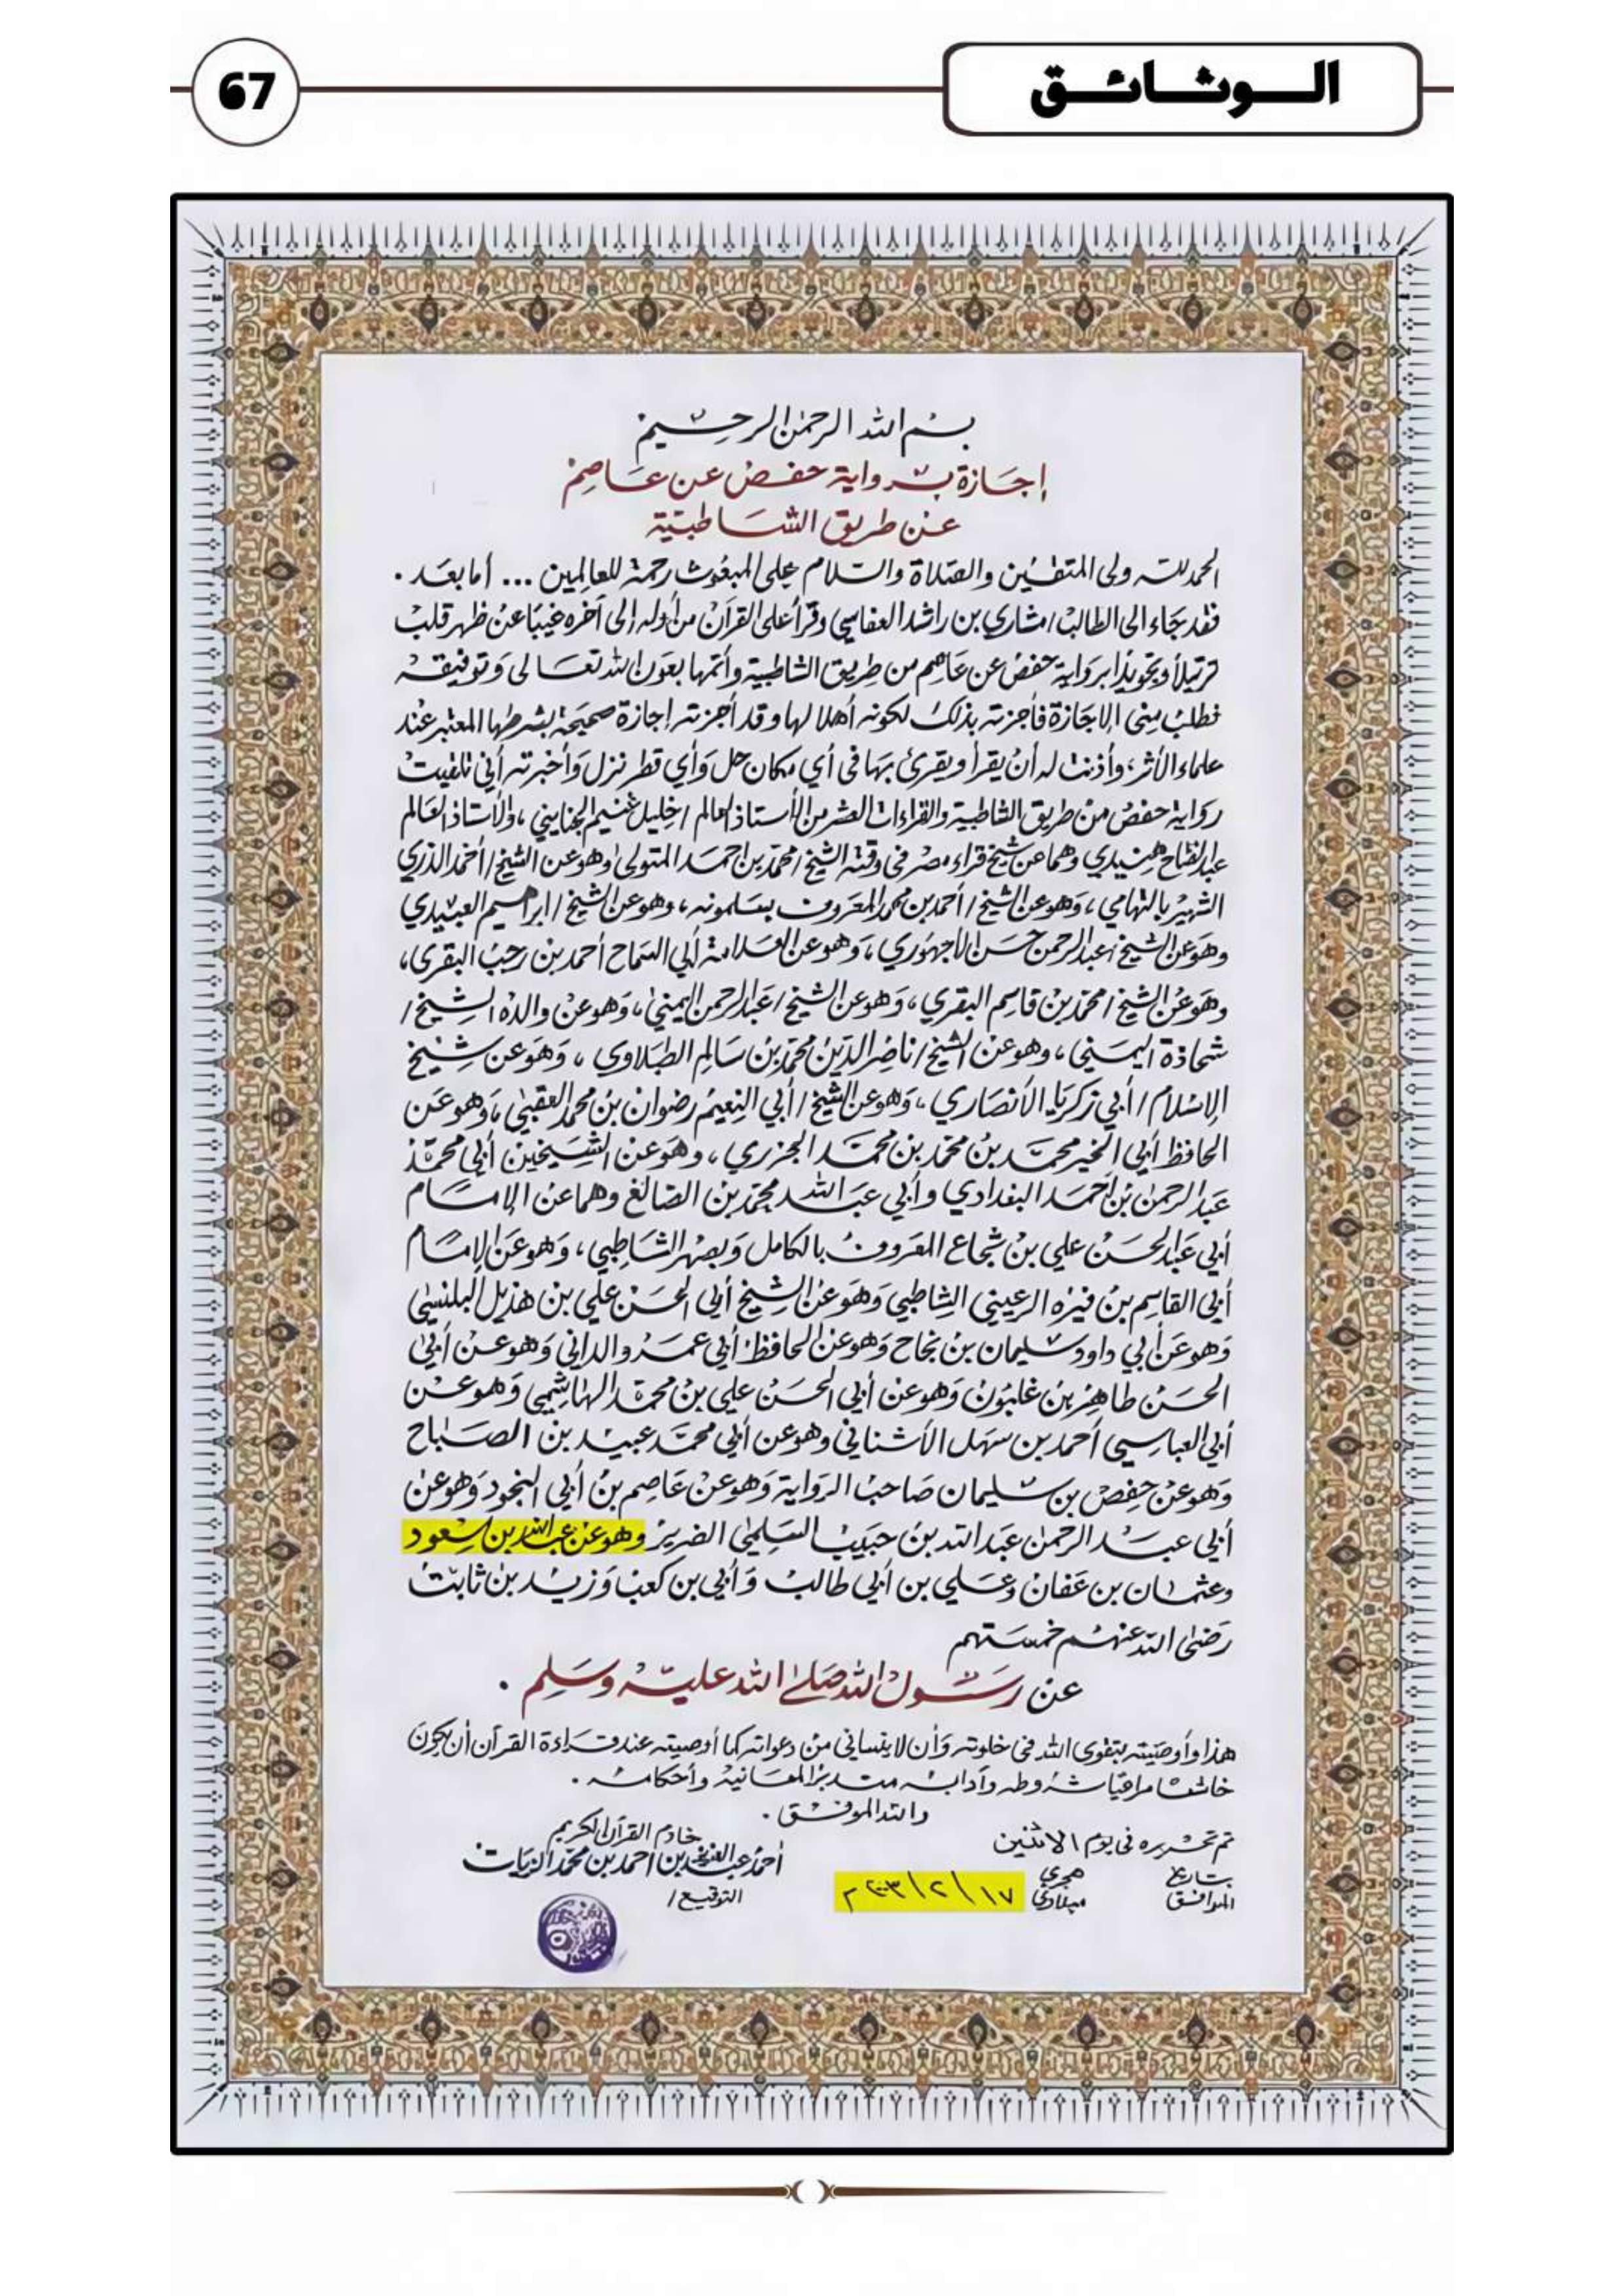 الوثائق
67
بسم الله الرحمن الرحيم
إجازة برواية حفص عن عاصم
عن طريق الشاطبية
الحمد لله ولي المتقين والصلاة والسلام على المبعوث رحمة للعالمين ... أما بعد .
فقد جاء الى الطالب / مشاري بن راشد العفاسي وقرأ على القرآن من أوله إلى آخره غيبًا عن ظهر قلب
ترتيلاً وتجويدًا برواية حفص عن عاصم من طريق الشاطبية وأتمها بعون الله تعالى وتوفيقه
فطلب مني الاجازة فأجزته بذلك لكونه أهلا لها وقد أجزته إجازة صحيحة بشرطها المعتبر عند
علماء الأثر، وأذنت له أن يقرأ ويقرئ بها في أي مكان حل وأي قطر نزل وأخبرته أني تلقيت
رواية حفص من طريق الشاطبية والقراءات العشر من الأستاذ العالم / خليل غنيم الجنايني ، والأستاذ العالم
عبد الفتاح هنيدي وهما عن شيخ قراء مصر في وقته الشيخ / محمد بن احمد المتولى وهو عن الشيخ / أحمد الدري
الشهير بالتهامي ، وهو عن الشيخ / أحمد بن محمد المعروف بسلمونه ، وهو عن الشيخ / ابراهيم العبيدي
وهو عن الشيخ / عبد الرحمن حسن الأجهوري ، وهو عن العلامة أبي السماح أحمد بن رجب البقري ،
وهو عن الشيخ / محمد بن قاسم البقري ، وهو عن الشيخ / عبد الرحمن اليمني ، وهو عن والده الشيخ /
شحاذة اليمني ، وهو عن الشيخ / ناصر الدين محمد بن سالم الطبلاوي ، وهو عن شيخ
الإسلام / أبي زكريا الأنصاري ، وهو عن الشيخ / أبي النعيم رضوان بن محمد العقبي ، وهو عن
الحافظ أبي الخير محمد بن محمد بن محمد الجزري ، وهو عن الشيخين أبي محمد
عبد الرحمن بن أحمد البغدادي وأبي عبد الله محمد بن الصائغ وهما عن الإمام
أبي عبد الحسن علي بن شجاع المعروف بالكامل وبصهر الشاطبي ، وهو عن الإمام
أبي القاسم بن فيره الرعيني الشاطبي وهو عن الشيخ أبي الحسن علي بن هذيل البلنسي
وهو عن أبي داود سليمان بن نجاح وهو عن الحافظ أبي عمرو الداني وهو عن أبي
الحسن طاهر بن غلبون وهو عن أبي الحسن علي بن محمد الهاشمي وهو عن
أبي العباسي أحمد بن سهل الأشناني وهو عن أبي محمد عبيد بن الصباح
وهو عن حفص بن سليمان صاحب الرواية وهو عن عاصم بن أبي النجود وهو عن
أبي عبد الرحمن عبد الله بن حبيب السلمي الضرير وهو عن عبد الله بن مسعود
وعثمان بن عفان وعلي بن أبي طالب وأبي بن كعب وزيد بن ثابت
رضي الله عنهم خمستهم
عن رسول الله صلى الله عليه وسلم .
هذا وأوصيته بتقوى الله في خلوته وأن لا ينساني من دعواته كما أوصيته عند قراءة القرآن أن يكون
خاشعا مراقبا شروطه وآدابه متدبرا لمعانيه وأحكامه .
والله الموفق .
تم تحريره في يوم الاثنين
بتاريخ هجري
الموافق ١٧ / ٢ / ٢٠٠٣ م ميلادي
خادم القرآن الكريم
أحمد عبد العزيز بن أحمد بن محمد الزيات
التوقيع /